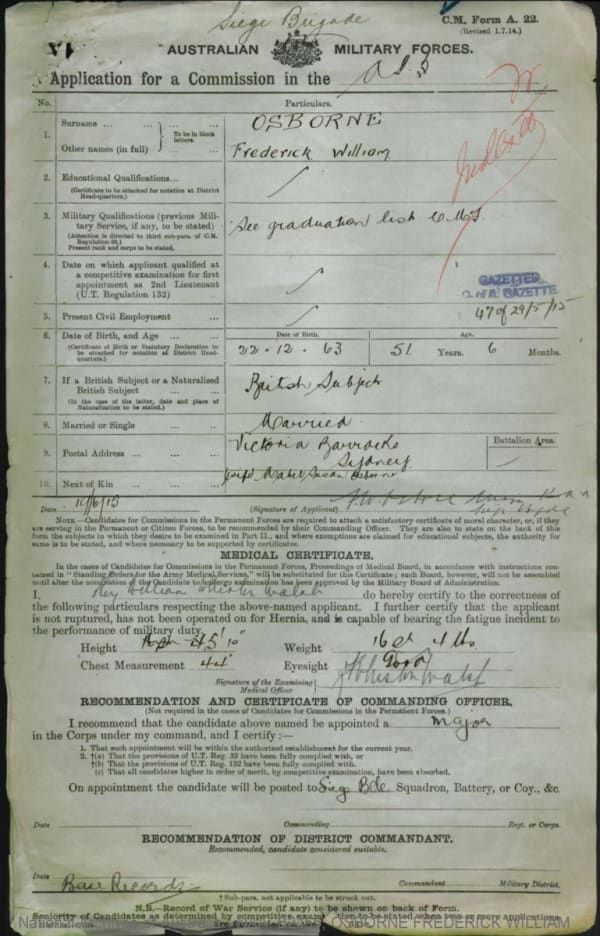 Siege Brigade
C.M. Form A. 22.
(Revised 1.7.14.)
AUSTRALIAN MILITARY FORCES.
Application for a Commission in the
No. Particulars.
1. Surname ... ... ... } To be in block letters. OSBORNE
Other names (in full) ... Frederick William
2. Educational Qualifications...
(Certificate to be attached for notation at District
Head-quarters.)
3. Military Qualifications (previous Mili-
tary Service, if any, to be stated) See graduation list
(Attention is directed to third sub-para. of C.M.
Regulation 66.)
Present rank and corps to be stated.
4. Date on which applicant qualified at
a competitive examination for first
appointment as 2nd Lieutenant
(U.T. Regulation 132) ..
GAZETTED
GAZETTE
47 of 29/5/15
5. Present Civil Employment ...
6. Date of Birth, and Age ... ... Date of Birth. Age.
(Certificate of Birth or Statutory Declaration to
be attached for notation at District Head-
quarters.)
22.12.63 51 Years. 6 Months.
7. If a British Subject or a Naturalized
British Subject ... ... British Subject
(In the case of the latter, date and place of
Naturalization to be stated.)
8. Married or Single ... Married
9. Postal Address ... ... Victoria Barracks Battalion Area.
Sydney
10. Next of Kin ... ... wife Mabel Susan Osborne
Date 10/6/15 (Signature of Applicant)
NOTE.—Candidates for Commissions in the Permanent Forces are required to attach a satisfactory certificate of moral character, or, if they
are serving in the Permanent or Citizen Forces, to be recommended by their Commanding Officer. They are also to state on the back of this
form the subjects in which they desire to be examined in Part II., and where exemptions are claimed for educational subjects, the authority for
same is to be stated, and where necessary to be supported by certificates.
MEDICAL CERTIFICATE.
In the cases of Candidates for Commissions in the Permanent Forces, Proceedings of Medical Board, in accordance with instructions con-
tained in "Standing Orders for the Army Medical Services," will be substituted for this Certificate; such Board, however, will not be assembled
until after the nomination of the Candidate to undergo examination has been approved by the Military Board of Administration.
I, William do hereby certify to the correctness of
the following particulars respecting the above-named applicant. I further certify that the applicant
is not ruptured, has not been operated on for Hernia, and is capable of bearing the fatigue incident to
the performance of military duty.
Height 5' 10" Weight 16 st 4 lbs
Chest Measurement 44" Eyesight Good
Signature of the Examining
Medical Officer
RECOMMENDATION AND CERTIFICATE OF COMMANDING OFFICER.
(Not required in the cases of Candidates for Commissions in the Permanent Forces.)
I recommend that the candidate above named be appointed a Major
in the Corps under my command, and I certify :—
1. That such appointment will be within the authorized establishment for the current year.
2. †(a) That the provisions of U.T. Reg. 33 have been fully complied with, or
†(b) That the provisions of U.T. Reg. 132 have been fully complied with.
(c) That all candidates higher in order of merit, by competitive examination, have been absorbed.
On appointment the candidate will be posted to Siege Bde Squadron, Battery, or Coy., &c.
Date Commanding Regt. or Corps.
RECOMMENDATION OF DISTRICT COMMANDANT.
Recommended, candidate considered suitable.
Date Commandant Military District.
Base Records
† Sub-para. not applicable to be struck out.
N.B.—Record of War Service (if any) to be shown on back of Form.
Seniority of Candidates as determined by competitive examination to be stated when two or more applications
are forwarded
OSBORNE FREDERICK WILLIAM